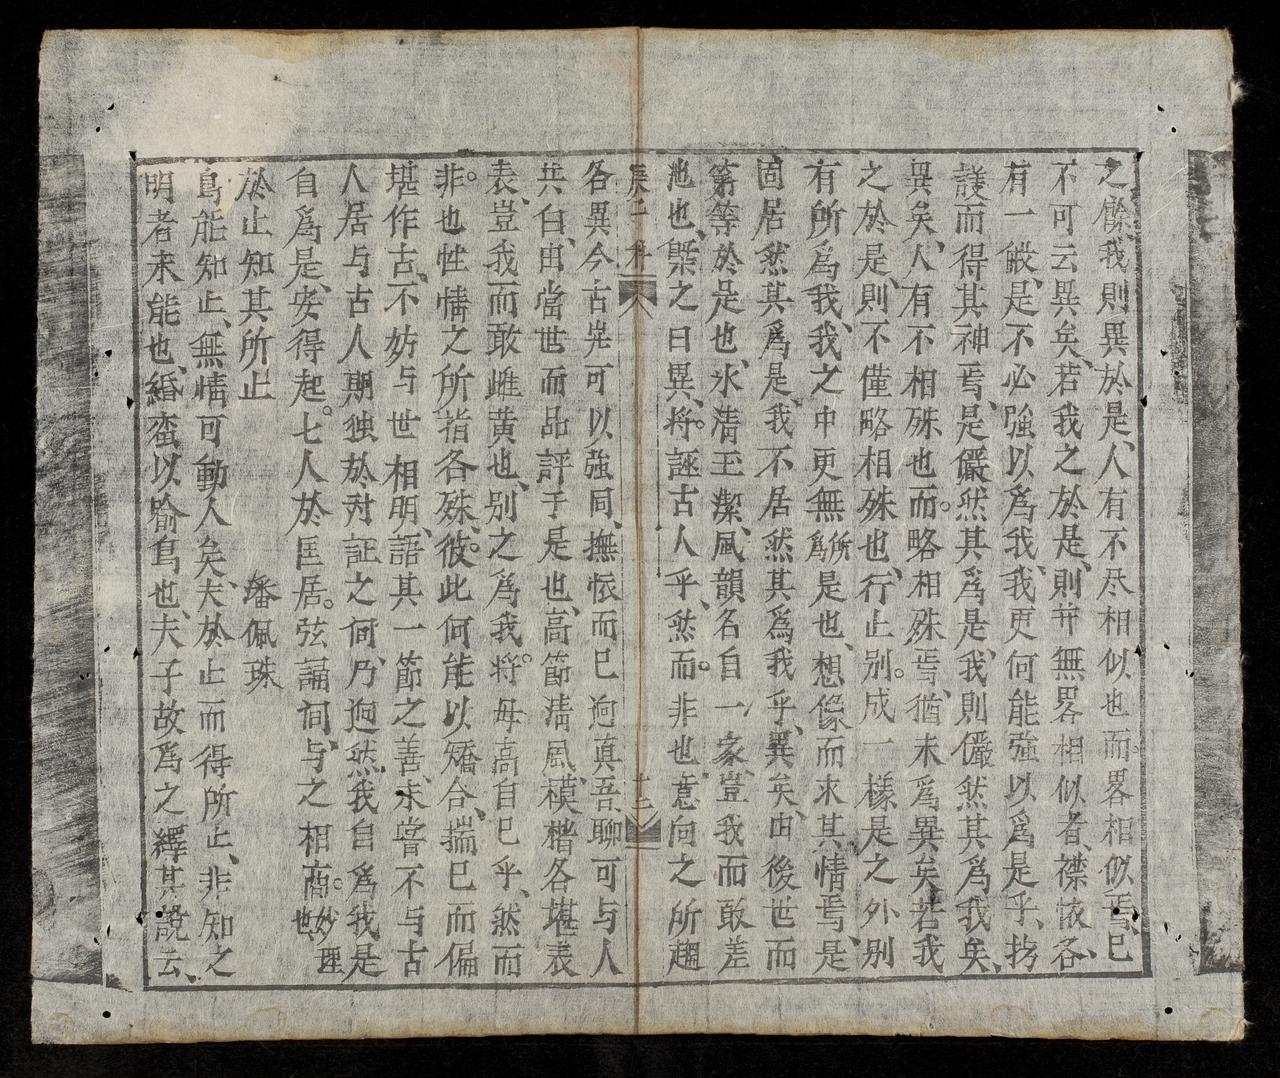 之餘、我則異於是、人有不尽相似也而畧相似焉、已
不可云異矣、若我之於是、則並無畧相似者、襟懷各
有一般、是不必強以為我、我更何能強以為是乎、
護而得其神焉、是儼然其為是、我則儼然其為我矣、
異矣、人有不相殊也。而略相殊焉、猶未為異矣若我
之於是、則不僅略相殊也、行止别。成一樣是之外别
有所為我、我之中更無所為是也、想像而求其情焉、是
固居然其為是、我不居然其為我乎、異矣、由後世而
第等於是也、氷清玉潔、風韻名自一家、豈我而敢差
池也、槩之曰異、將。誣古人乎、然而。非也意向之所趨
各異今古岂可以強同、撫懷而已迥真吾聊可与人
共白、由當世而品評乎是也、高節清風、模楷各堪表
表、豈我而敢雌黄也、别之為我。將毋高自已乎、然而
非。也性情之所指各殊、彼。此何能以矯合、揣已而偏
堪作古、不妨与世相明、語其一節之善、未嘗不与古
人居与古人期独於對証之何、乃迥然、我自為我是
自為是、安得起。七人於匡居。弦誦间、与之相商。也妙理
於止知其所止　潘佩珠
鳥能知止、無情可動人矣、夫於止而得所止、非知之
明者未能也、緡蛮以喻鳥也、夫子故為之繹其說云、